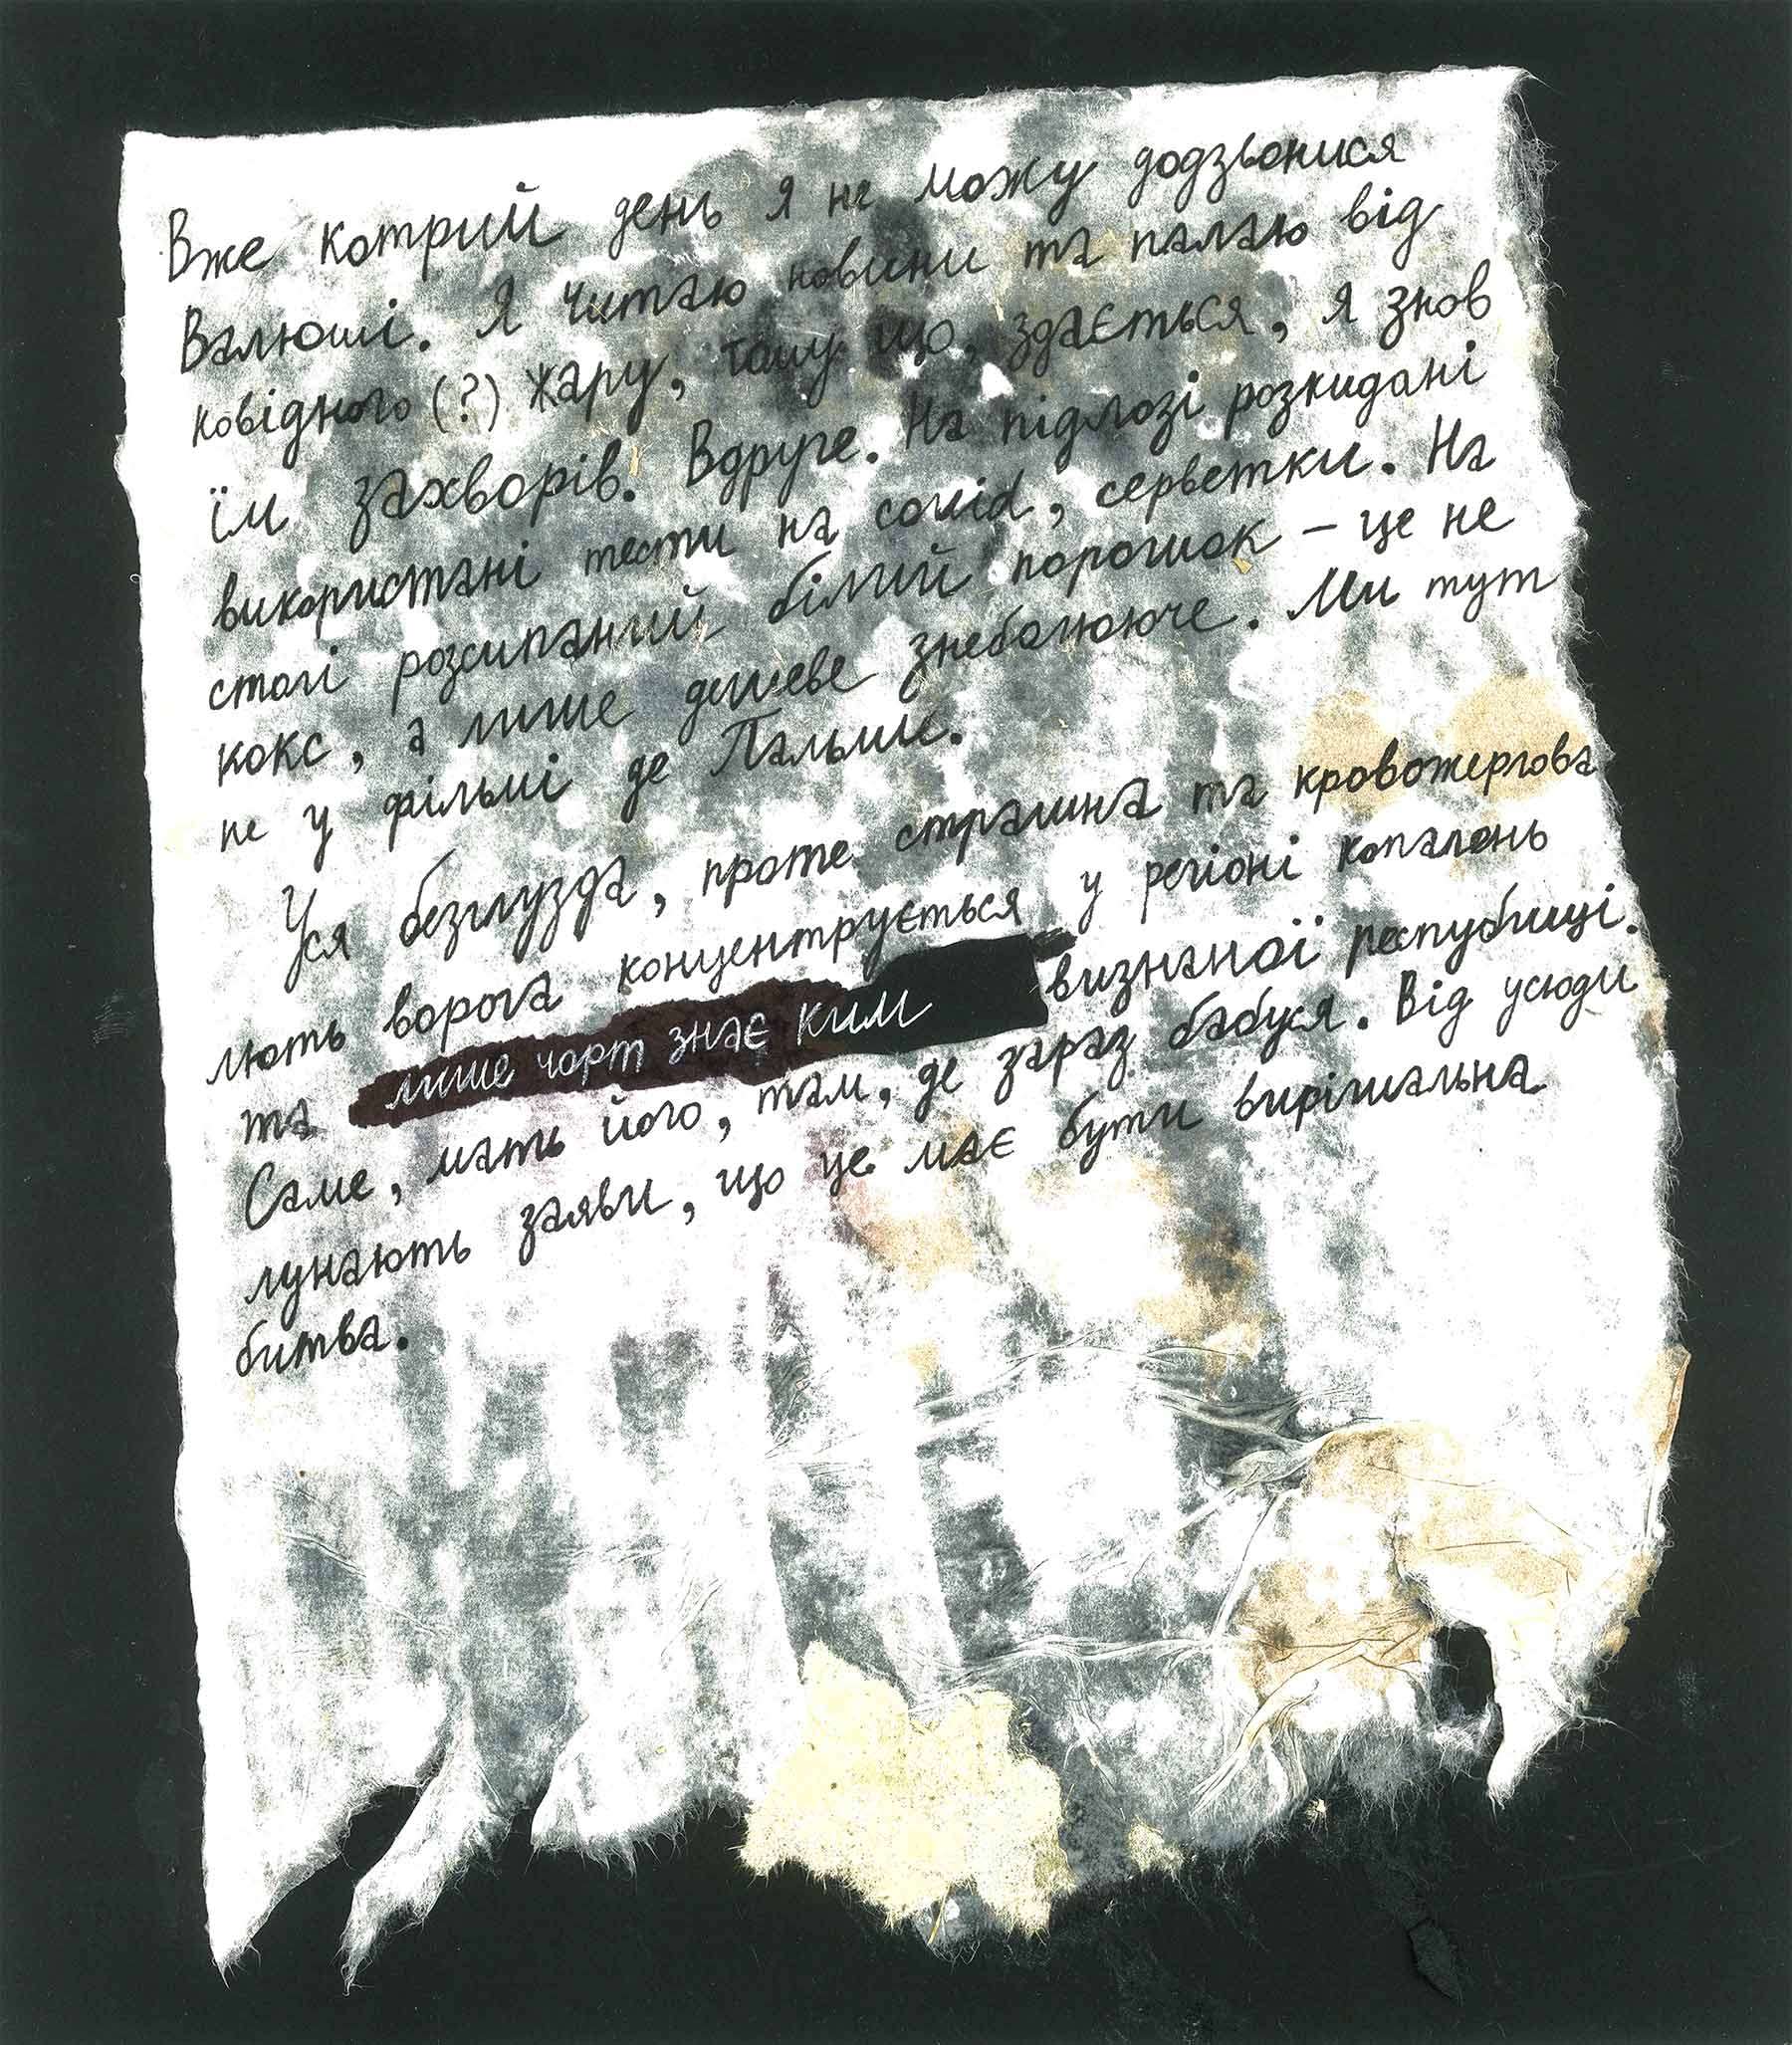 Вже котрий день я не можу додзвонися
Валюші. Я читаю новини та палаю від
ковідного (?) жару, тому що, здається, я знов
їм захворів. Вдруге. На підлозі розкидані
використані тести на covid, серветки. На
столі розсипаний білий порошок – це не
кокс, а лише дешеве знеболююче. Ми тут
не у фільмі де Пальми.
Уся безглузда, проте страшна та кровожерлова
лють ворога концентрується у регіоні копалень
та лише чорт знає ким визнаної республіці.
Саме, мать його, там, де зараз бабуся. Від усюди
лунають заяви, що це має бути вирішальна
битва.